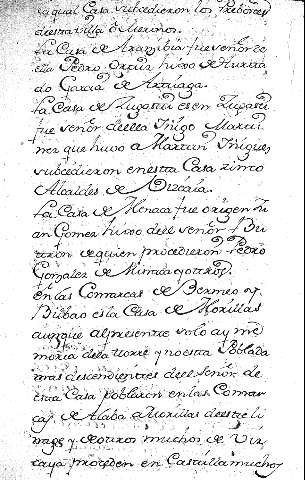 la qual Casa subcedieron los Prebores
de esta villa de Merinos.
La Casa de Arazubia fue señor de
ella Pedro Ortiz huxo de Hurta
do Garcia de Arteaga.
La Casa de Zugasti es en Zugasti
fue señor de ella Yñigo Martí
nez que huvo a Martin Yñigues
subcedieron en esta Casa zinco
Alcaldes de Vizcaia.
La Casa de Menaca fue origen Ju
an Gomez huxo del señor de Bu
tron de quien procedieron Pedro
Gonzalez de Mundaca y otros.
en las Comarcas de Bermeo y
Bilbao es la Casa de Morillas
aunque al presente solo ay me
moria de la torre y no esta Poblada
mas descendientes de el Señor de
esta Casa poblaron en las Comar
cas de Alaba a Morillas de este li
nage y de otros muchos de Viz
caya proceden en Castilla muchos